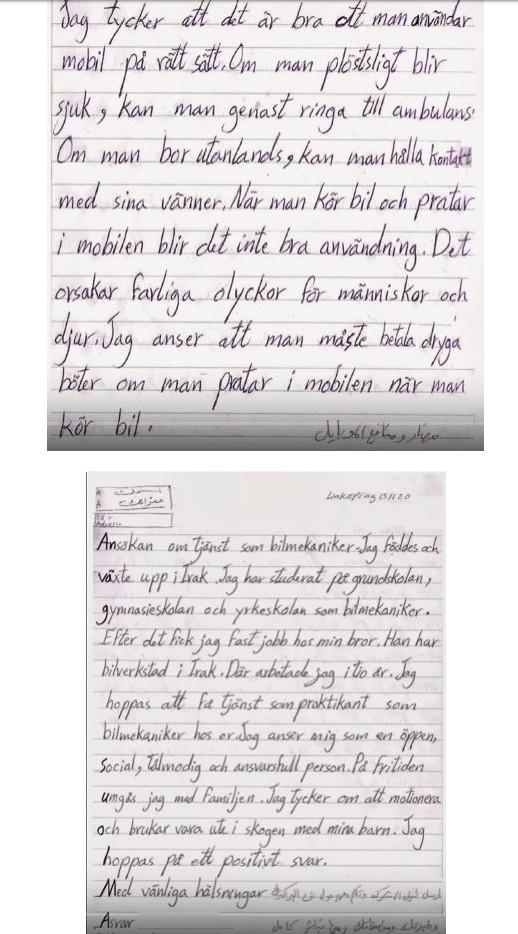 Jag tycker att det är bra att man användar
mobil på rätt sätt. Om man plöstsligt blir
sjuk, kan man genast ringa till ambulans.
Om man bor utanlands, kan man hålla kontakt
med sina vänner. När man kör bil och pratar
i mobilen blir det inte bra användning. Det
orsakar farliga olyckor för människor och
djur. Jag anser att man måste betala dryga
böter om man pratar i mobilen när man
kör bil.
Linköping
Ansökan om tjänst som bilmekaniker. Jag föddes och
växte upp i Irak. Jag har studerat på grundskolan,
gymnasieskolan och yrkeskolan som bilmekaniker.
Efter det fick jag fast jobb hos min bror. Han har
bilverkstad i Irak. Där arbetade jag i tio år. Jag
hoppas att få tjänst som praktikant som
bilmekaniker hos er. Jag anser mig som en öppen,
social, tålmodig och ansvarsfull person. På fritiden
umgås jag med familjen. Jag tycker om att motionera
och brukar vara ute i skogen med mina barn. Jag
hoppas på ett positivt svar.
Med vänliga hälsningar
Asvar